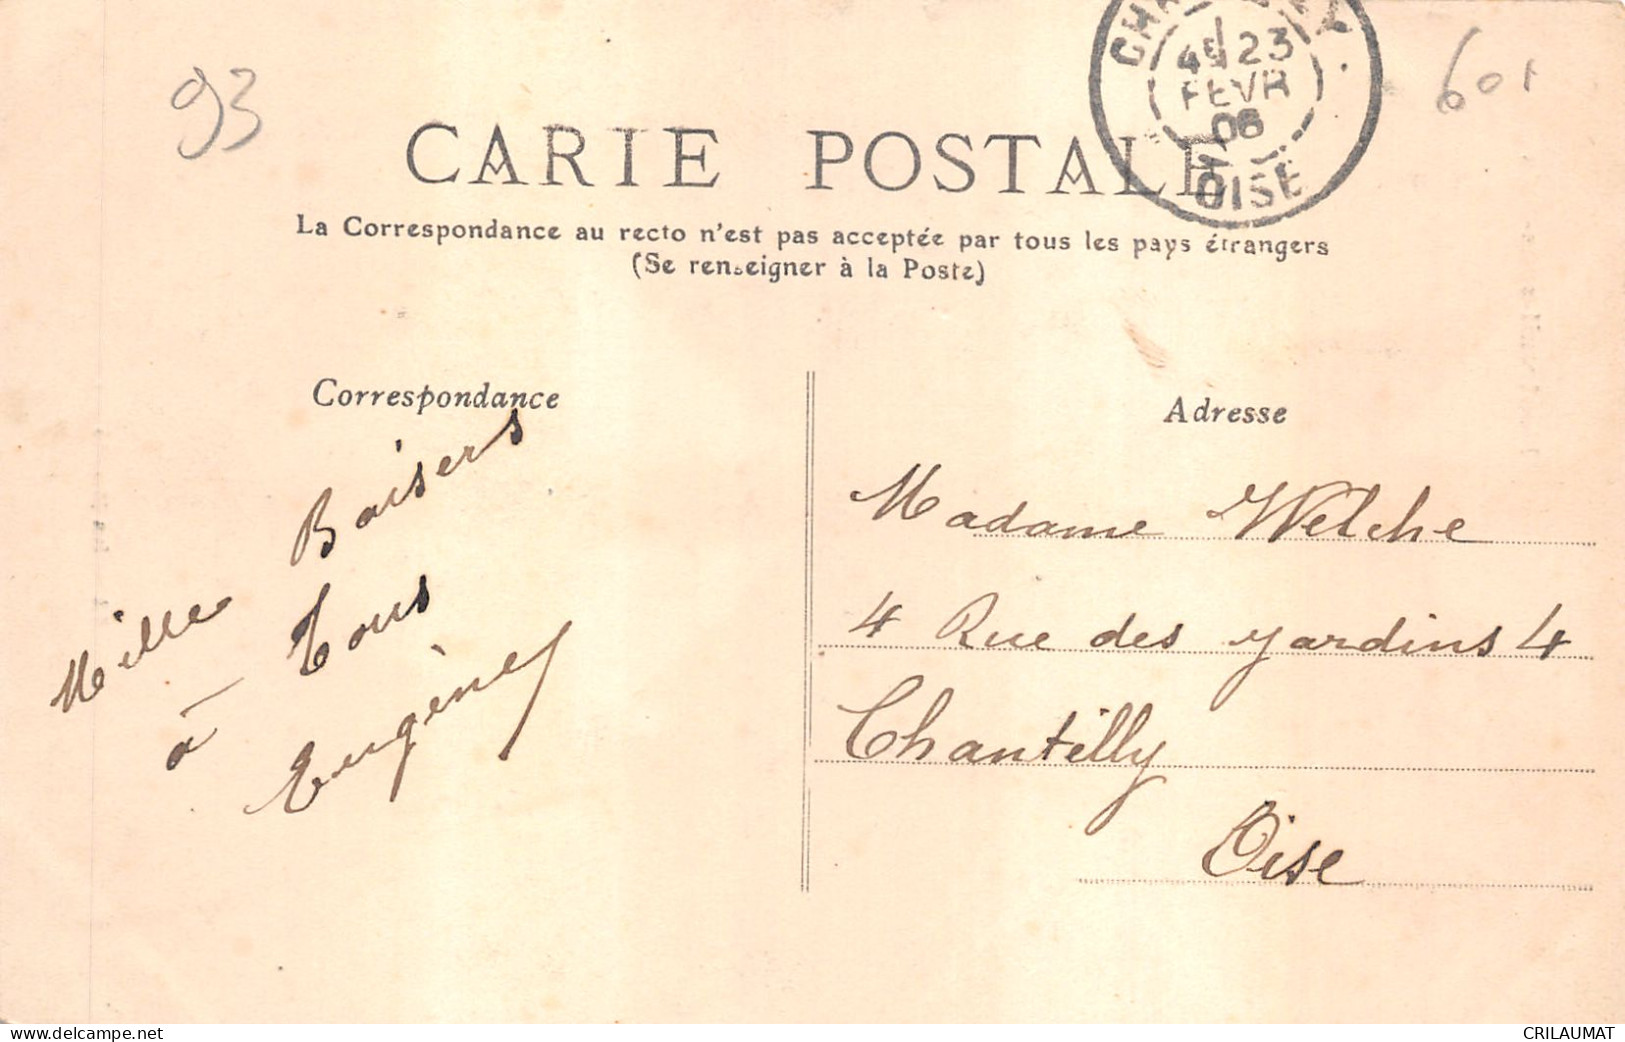 93
601
CHANTILLY
4E 23
FEVR
06
OISE
CARTE POSTALE
La Correspondance au recto n'est pas acceptée par tous les pays étrangers
(Se renseigner à la Poste)
Correspondance
Mille Baisers
à Tous
Eugène
Adresse
Madame Welche
4 Rue des jardins 4
Chantilly
Oise
www.delcampe.net
CRILAUMAT